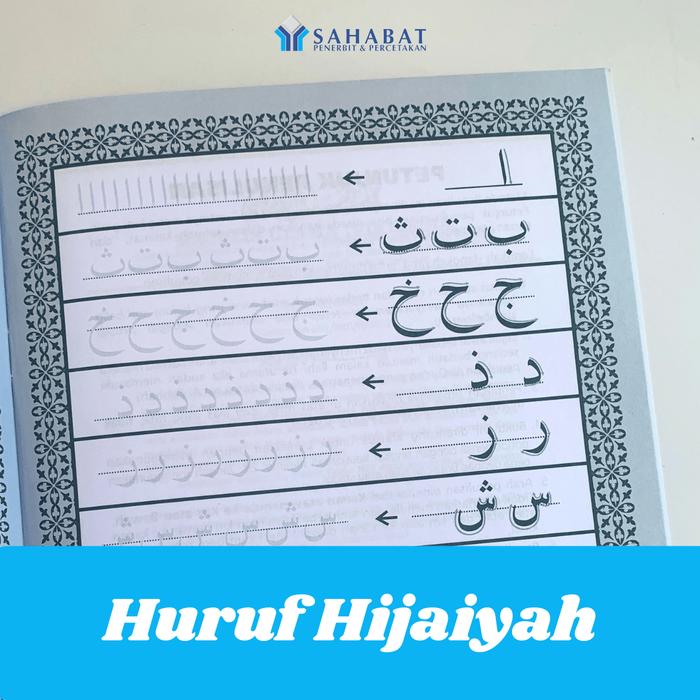 SAHABAT
PENERBIT & PERCETAKAN
ا ←
ب ت ث ← ب ت ث ب ت ث
ج ح خ ← ج ح خ ج ح خ
د ذ ←
ر ز ← ر ز ر ز ر ز ر ز
س ش ← س ش س ش س ش
Huruf Hijaiyah